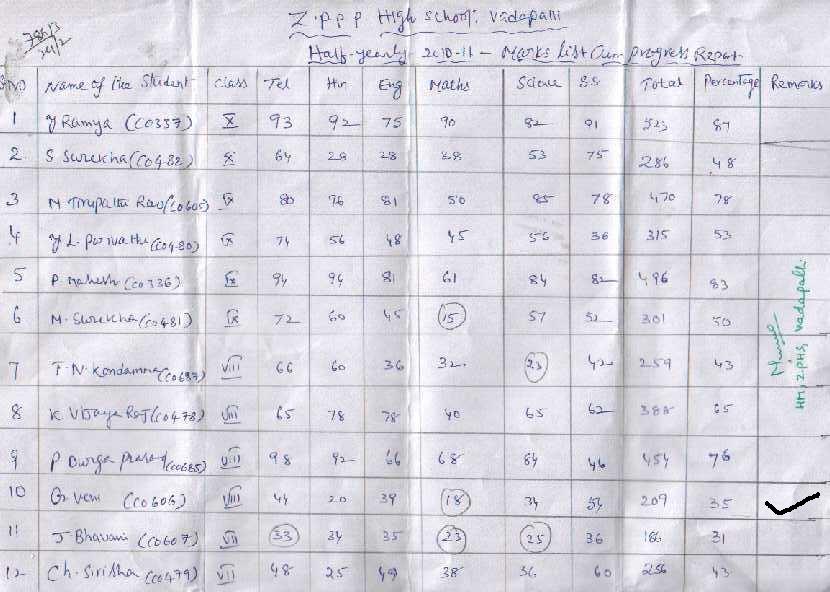 Z.P.P.P High School, Vadapalli
Half-yearly 2010-11 - Marks List Cum progress Report
S.No Name of the Student class Tel Hin Eng Maths Science S.S Total Percentage Remarks
1 Y Ramya (C0337) X 93 92 75 90 82 91 523 87
2 S Surekha (C0482) X 64 28 28 53 75 286 48
3 M Tirupatha Rao (C0605) IX 80 76 81 50 85 78 470 78
4 Y L. Parvathi (C0480) IX 74 56 48 45 56 36 315 53
5 P. Mahesh (C0336) IX 94 94 81 61 84 82 496 83
6 M. Surekha (C0481) IX 72 60 45 15 57 52 301 50
7 T. N. Kondamma VIII 66 60 36 32 23 42 259 43
8 K Vijaya Raj (C0478) VIII 65 78 78 40 65 62 388 65
9 P Durga Prasad (C0685) VIII 98 92 66 68 84 46 454 76
10 G. Veni (C0606) VIII 44 20 39 18 34 54 209 35
11 J Bhavani (C0607) VII 33 34 35 23 25 36 186 31
12 Ch. Sirisha (C0479) VII 48 25 49 38 36 60 256 43
HM, ZPHS, Vadapalli